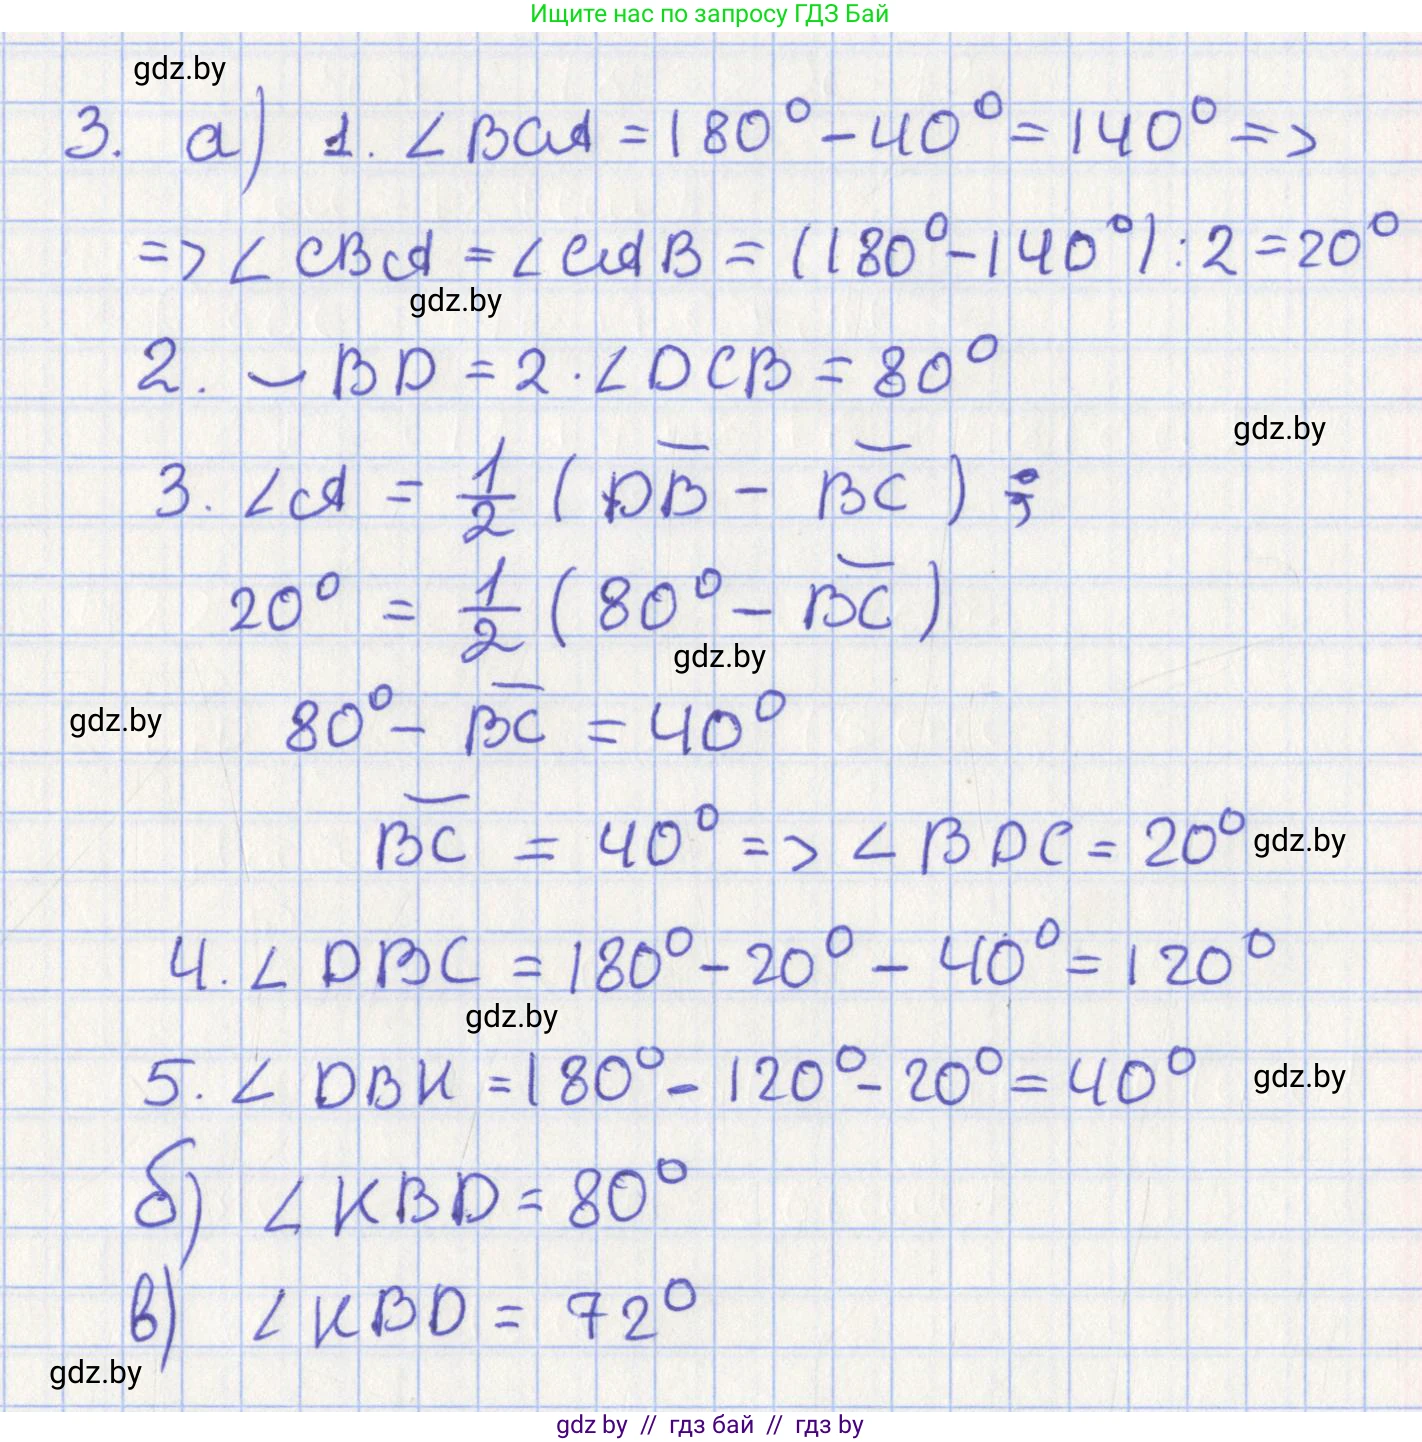 Ищите нас по запросу ГДЗ Бай
gdz.by
3. а) 1. ∠BCA = 180° - 40° = 140° =>
=> ∠CBA = ∠CAB = (180° - 140°) : 2 = 20°
gdz.by
2. ⌣BD = 2 · ∠DCB = 80°
gdz.by
3. ∠A = 1/2 (⌣DB - ⌣BC) ;
20° = 1/2 (80° - ⌣BC)
gdz.by
gdz.by
80° - ⌣BC = 40°
⌣BC = 40° => ∠BDC = 20°
gdz.by
4. ∠DBC = 180° - 20° - 40° = 120°
gdz.by
5. ∠DBK = 180° - 120° - 20° = 40°
gdz.by
б) ∠KBD = 80°
в) ∠KBD = 72°
gdz.by
gdz.by // гдз бай // гдз by